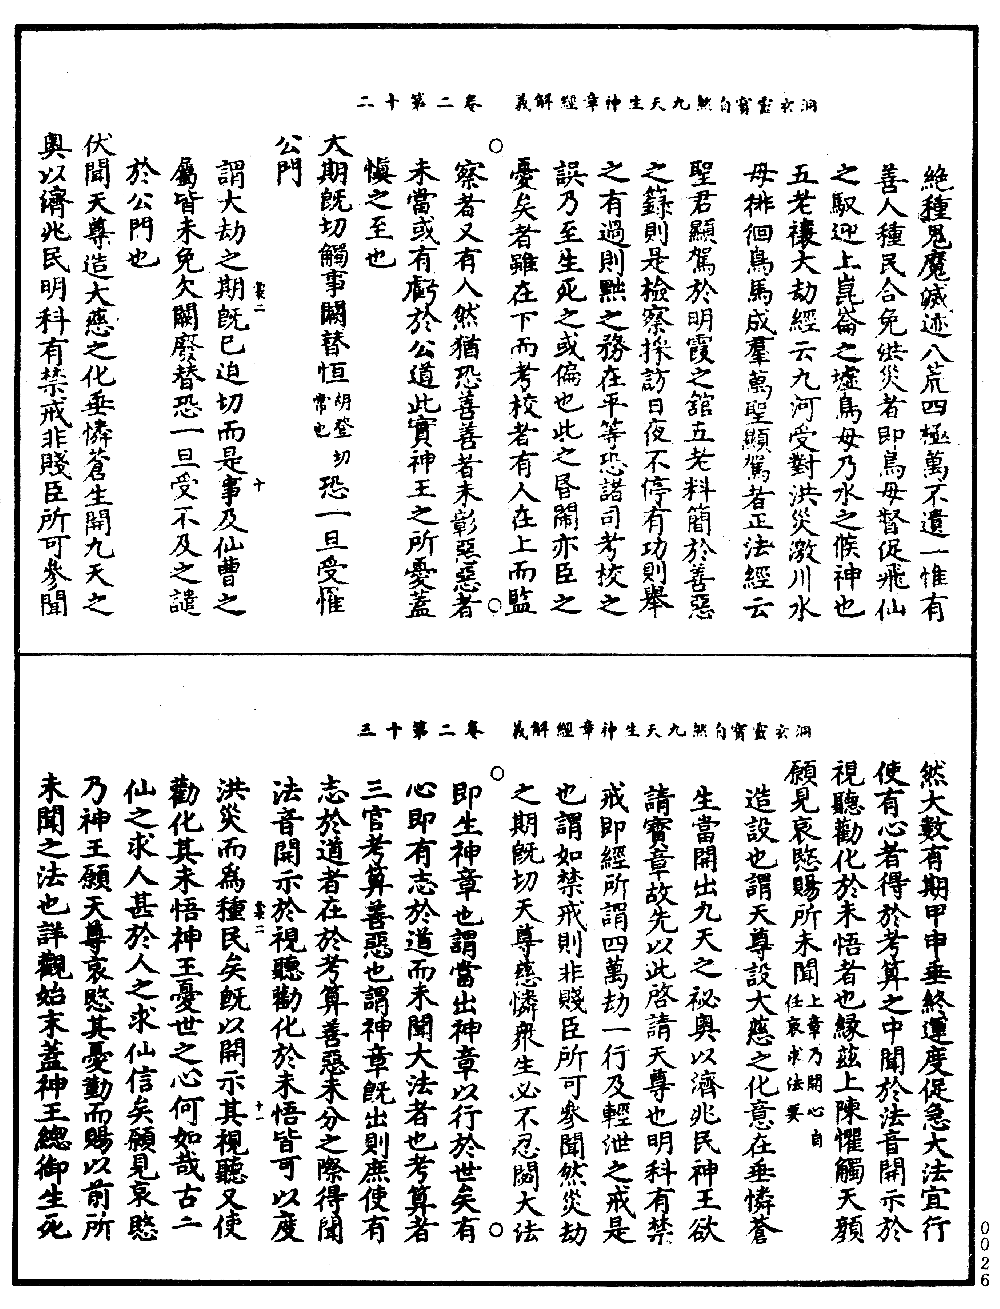 洞玄靈寶自然九天生神章經解義　卷二第十二
絶種鬼魔滅迹八荒四極萬不遺一惟有
善人種民合免洪災者即鳥母督促飛仙
之馭迎上崑崙之墟鳥母乃水之候神也
五老禳大劫經云九河受對洪災激川水
母徘徊鳥馬成羣萬聖顯駕者正法經云
聖君顯駕於明霞之舘五老料簡於善惡
之籙則是檢察採訪日夜不停有功則舉
之有過則黜之務在平等恐諸司考校之
誤乃至生死之或偏也此之昏鬧亦臣之
憂矣者雖在下而考校者有人在上而監
察者又有人然猶恐善善者未彰惡惡者
未當或有虧於公道此實神王之所憂蓋
愼之至也
大期旣切觸事闕替恒胡登切常也恐一旦受罹
公門
謂大劫之期旣已迫切而是事及仙曹之
屬皆未免欠闕廢替恐一旦受不及之譴
於公門也
伏聞天尊造大慈之化垂憐蒼生開九天之
奥以濟兆民明科有禁戒非賤臣所可參聞
洞玄靈寶自然九天生神章經解義　卷二第十三
然大數有期甲申垂終運度促急大法宜行
使有心者得於考算之中聞於法音開示於
視聽勸化於未悟者也緣兹上陳懼觸天顔
願見哀愍賜所未聞上章乃開心自任哀求法要
造設也謂天尊設大慈之化意在垂憐蒼
生當開出九天之祕奥以濟兆民神王欲
請寶章故先以此啓請天尊也明科有禁
戒即經所謂四萬劫一行及輕泄之戒是
也謂如禁戒則非賤臣所可參聞然災劫
之期旣切天尊慈憐衆生必不忍閟大法
即生神章也謂當出神章以行於世矣有
心即有志於道而未聞大法者也考算者
三官考算善惡也謂神章旣出則庶使有
志於道者在於考算善惡未分之際得聞
法音開示於視聽勸化於未悟皆可以度
洪災而為種民矣旣以開示其視聽又使
勸化其未悟神王憂世之心何如哉古二
仙之求人甚於人之求仙信矣願見哀愍
乃神王願天尊哀愍其憂勤而賜以前所
未聞之法也詳觀始末蓋神王總御生死
0026